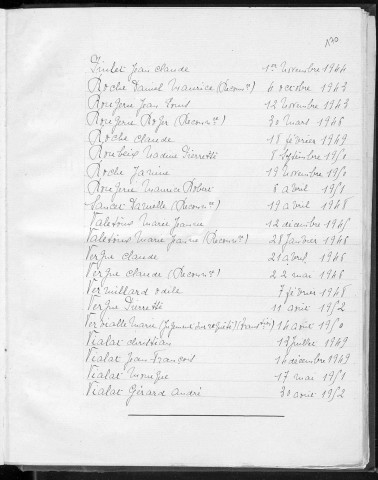 170
Jean Claude 1er novembre 1944
Roche Daniel Maurice (Reconce) 6 octobre 1943
Rougerie Jean Louis 12 novembre 1943
Rougerie Roger (Reconce) 30 mars 1946
Roche Claude 18 février 1949
Nadine Pierrette 8 Septembre 1950
Roche Janine 19 novembre 1950
Rougerie Maurice Robert 8 avril 1951
Danielle (Reconce) 19 avril 1948
Valetoux Marie Jeanne 12 décembre
Valetoux Marie Jeanne (Reconce) 28 Janvier 1946
Vergne Claude 21 avril 1946
Vergne Claude (Reconce) 22 mai 1948
Vermillard Odile 7 février 1948
Vergne Pierrette 11 août 1952
Marie 16 août 1950
Vialat Christian 13 Juillet 1949
Vialat Jean François 16 décembre 1949
Vialat Monique 17 mai 1951
Vialat Gérard André 30 août 1952